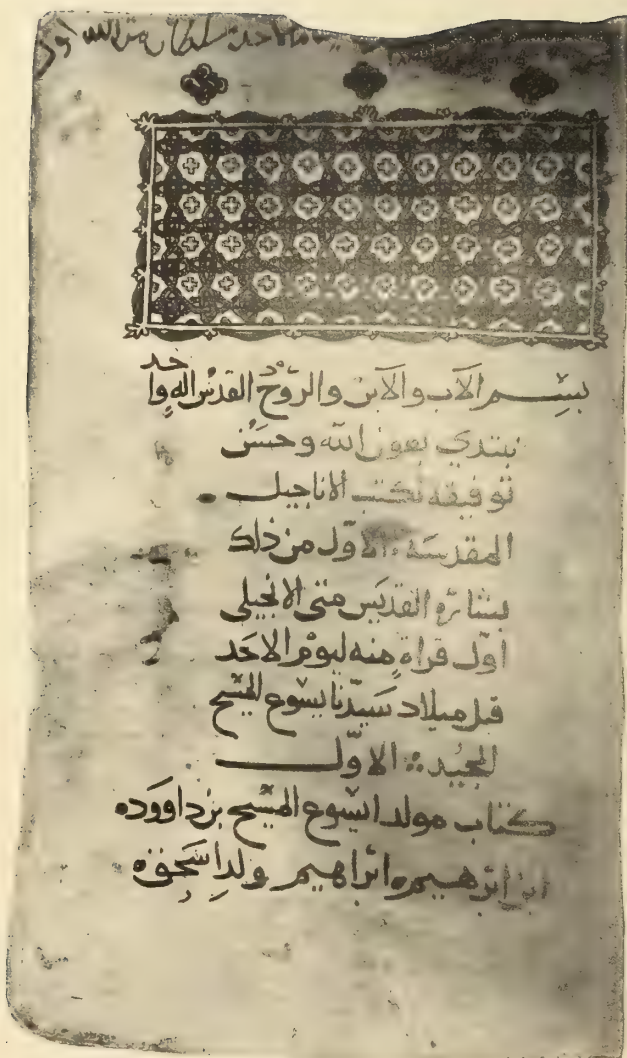 بسم الاب والابن والروح القدس اله واحد
نبتدي بعون الله وحسن
توفيقه نكتب الاناجيل
المقدسة الاول من ذلك
بشارة القديس متى الانجيلي
اول قراة منه ليوم الاحد
قبل ميلاد سيدنا يسوع المسيح
المجيد الاول
كتاب مولد ايسوع المسيح بن داوود
ابن ابرهيم ابراهيم ولد اسحق